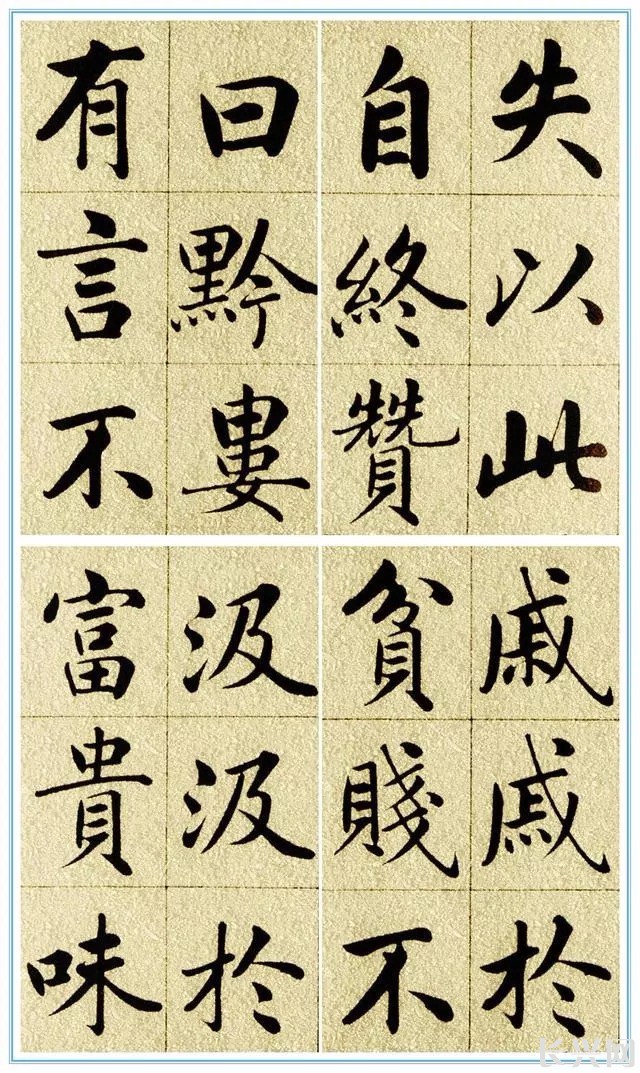 失以此
自終贊
曰黔婁
有言不
戚戚於
貧賤不
汲汲於
富貴味
长兴网